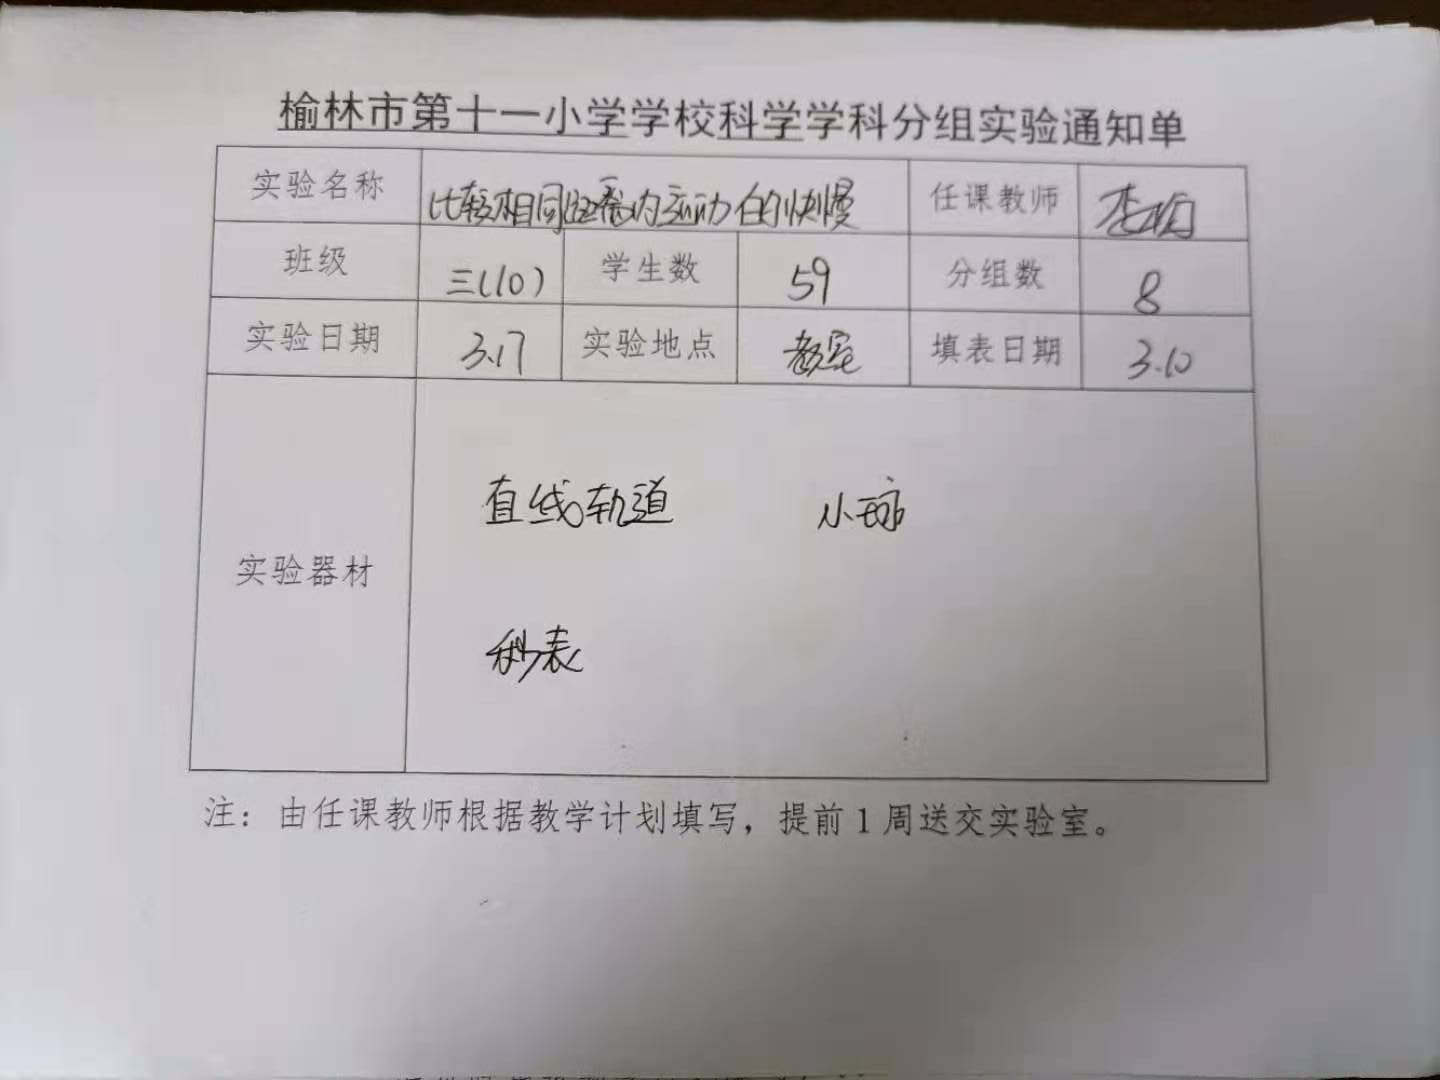 榆林市第十一小学学校科学学科分组实验通知单
实验名称 比较相同距离内运动的快慢 任课教师 李
班级 三(10) 学生数 59 分组数 8
实验日期 3.17 实验地点 教室 填表日期 3.10
直线轨道 小球
实验器材
秒表
注：由任课教师根据教学计划填写，提前1周送交实验室。